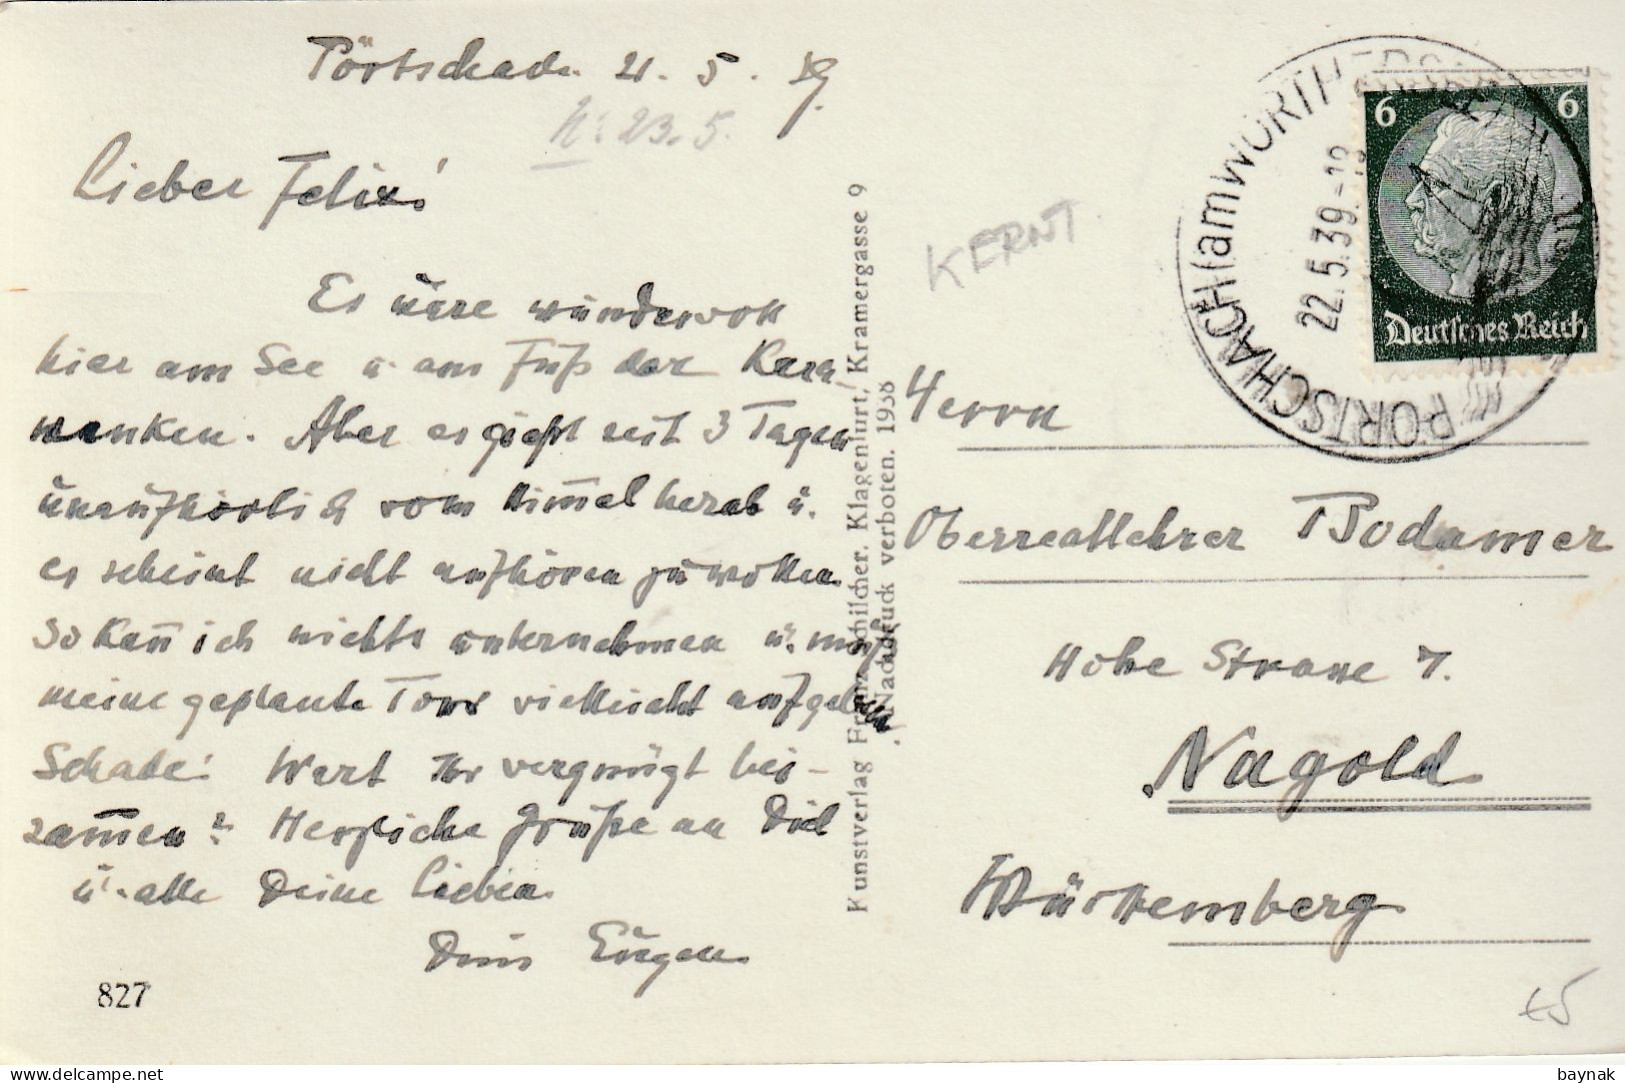 Pörtschach. 21. 5. 39.
n: 23.5.
Lieber Felix!
Es wäre wundervoll
hier am See u. am Fuß der Kara-
wanken. Aber es gießt seit 3 Tagen
unaufhörlich vom Himmel herab u.
es scheint nicht aufhören zu wollen.
So kann ich nichts unternehmen u. muß
meine geplante Tour vielleicht aufgeben
Schade! Wart Ihr vergnügt bei-
sammen? Herzliche Grüße an Dich
u. alle Deine Lieben.
Dein Eugen.
827
Kunstverlag Franz Schilcher, Klagenfurt, Kramergasse 9
Nachdruck verboten. 1938
KERNT
PÖRTSCHACH am WÖRTHERSEE
22.5.39.-18
6 6
Deutsches Reich
Herrn
Oberreallehrer Bodamer
Hohe Strasse 7.
Nagold
Württemberg
£5
baynak